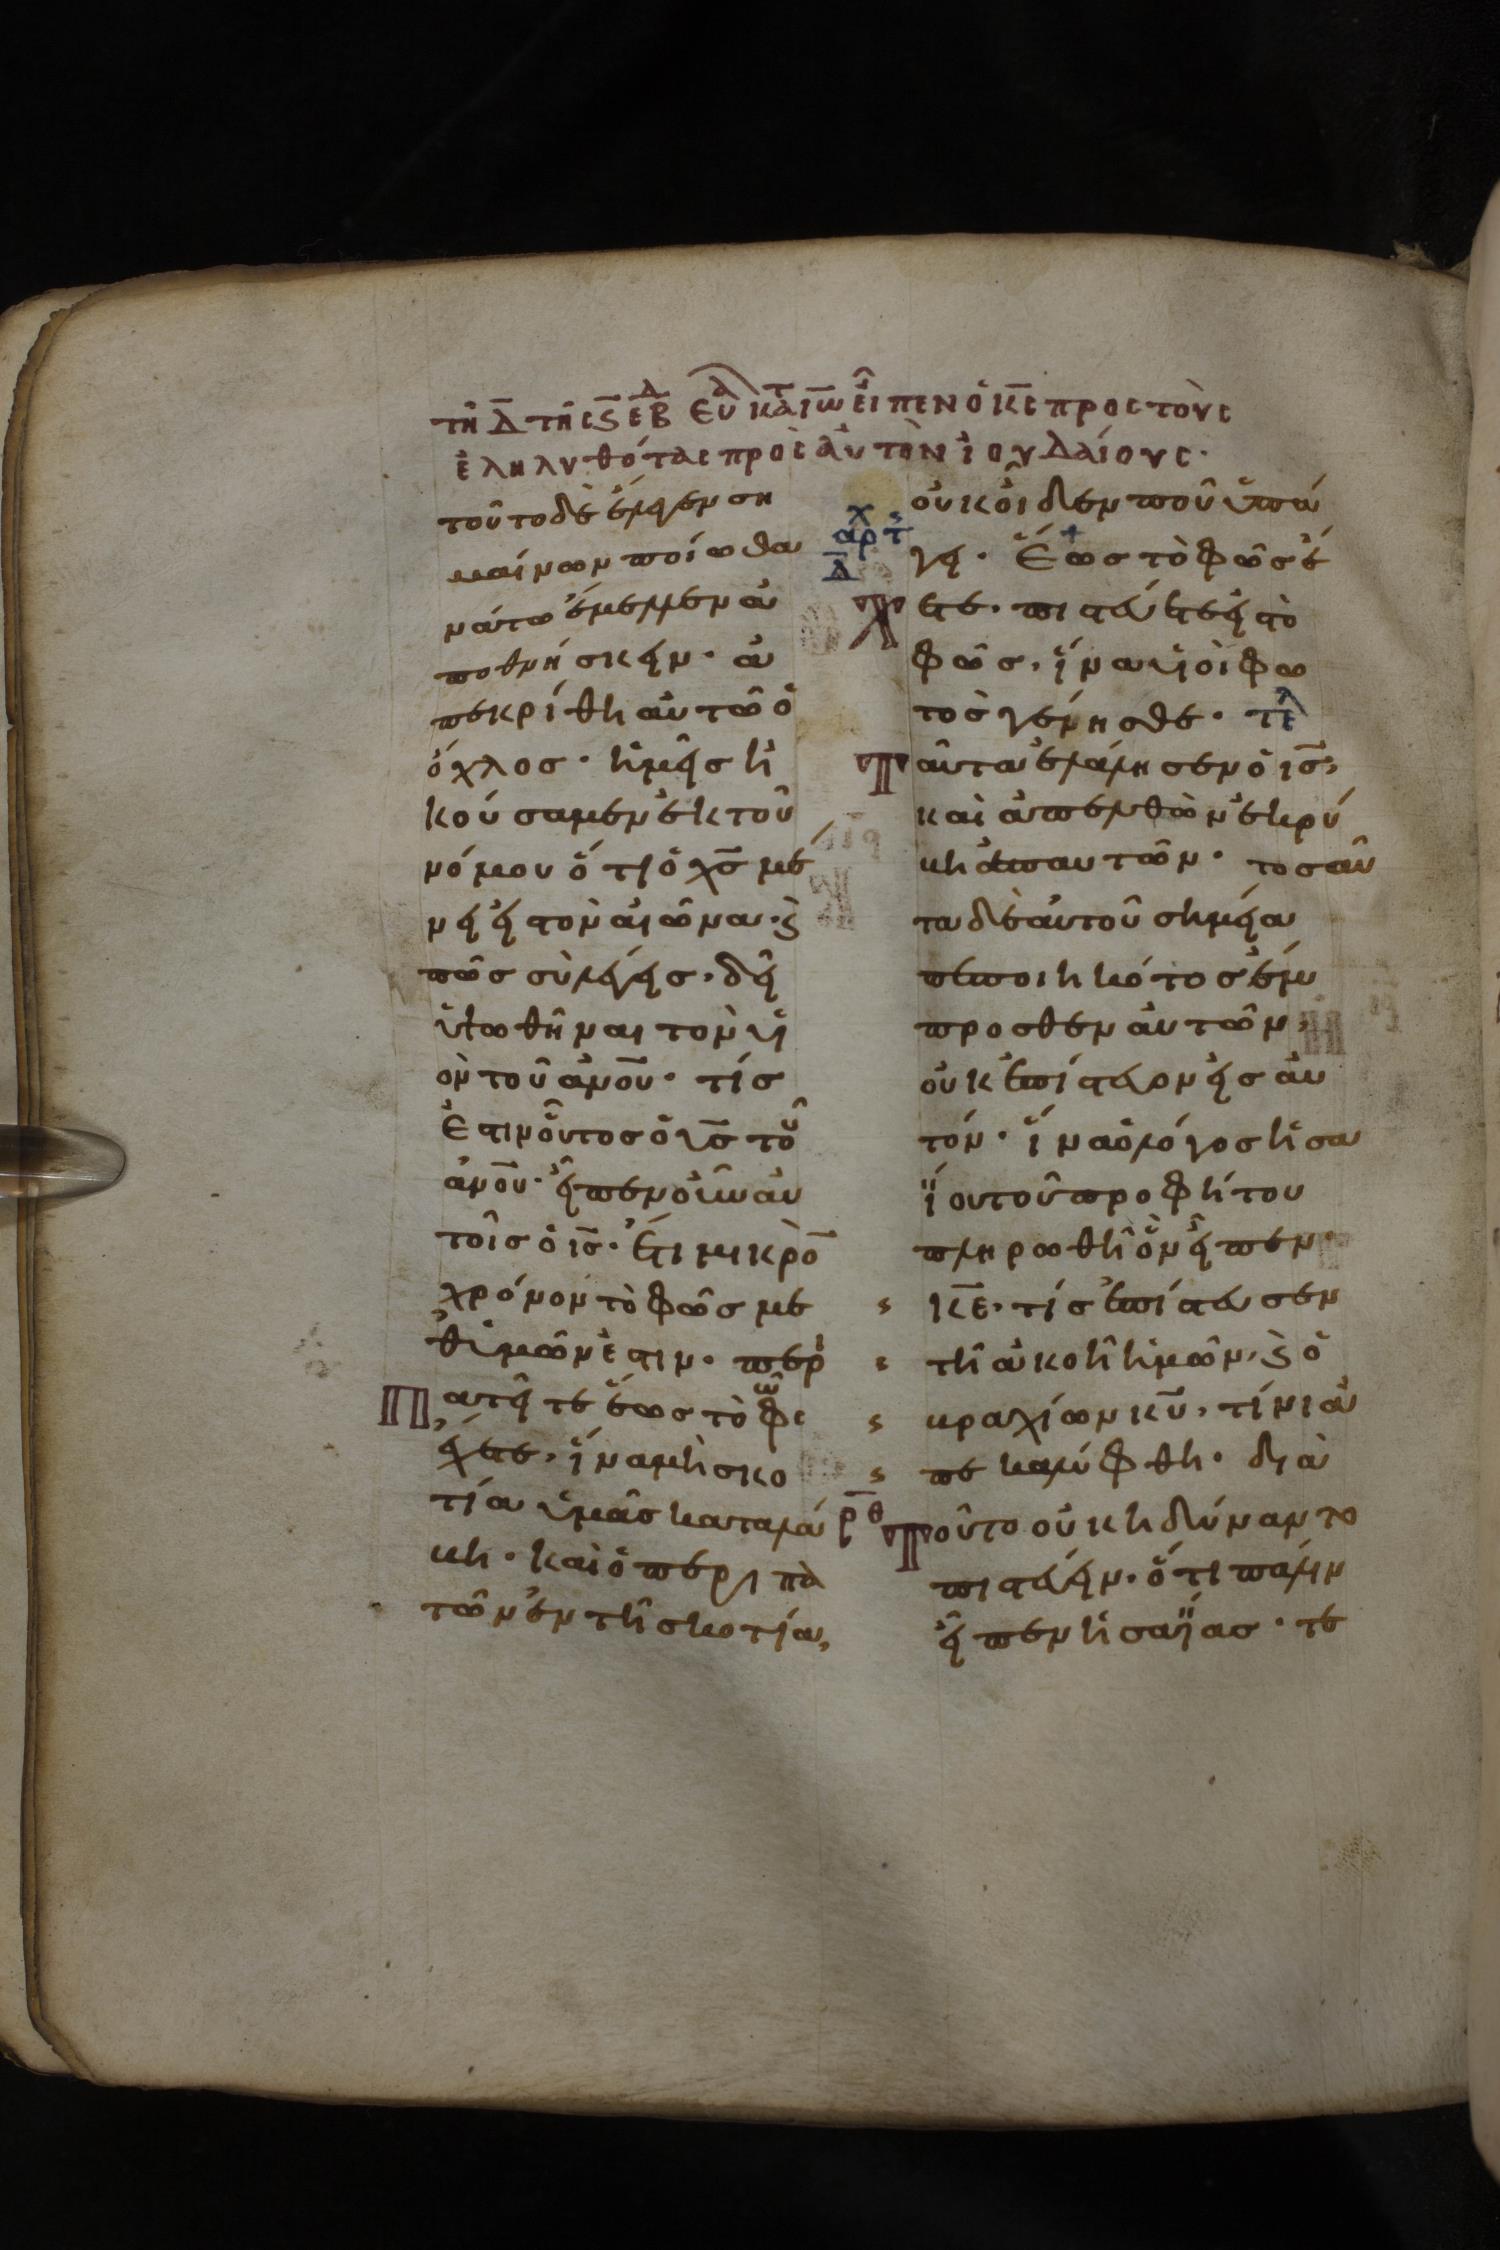 τῆ Δ τῆς ϛ ἑβδ ευα κατ ιω εἶπεν ὁ κς προς τοὺς
ἐληλυθότας προς ἀυτὸν ἰουδαίους·
τοῦτο δὲ ἔλεγεν ση
μαίνων ποίω θα
νάτω ἔμελλεν ἀ
ποθνήσκειν· ἀ
πεκρίθη αὐτῶ ὁ
ὄχλος· ἡμεῖς ἠ
κούσαμεν ἐκ τοῦ
νόμου ὅτι ὁ χς μέ
νει εἰς τὸν αἰῶνα· ϗ
πῶς σὺ λέγεις, δεῖ
ὑψωθῆναι τὸν υἱ
ὸν τοῦ ἀνου· τίς
ἐστιν οὗτος ὁ υς τοῦ
ἀνου· εἶπεν οὖν αὐ
τοῖς ὁ ις· ἔτι μικρὸ
χρόνον τὸ φῶς με
θ' ὑμῶν ἐστιν· περι
πατεῖτε ἕως τὸ φῶς
ἔχετε, ἵνα μὴ σκο
τία ὑμᾶς καταλά
βη· καὶ ὁ περιπα
τῶν ἐν τῆ σκοτία,
οὐκ οἶδεν ποῦ ὑπά
γει· Ἕως τὸ φῶς ἔ
χ αρτ Δ
χετε· πιστεύετε εἰς τὸ
φῶς, ἵνα υἱοὶ φω
τὸς γένησθε· τελ
Ταῦτα ἐλάλησεν ὁ ις,
καὶ ἀπελθὼν ἐκρύ
βη ἀπ αυτῶν· τοσαῦ
τα δὲ ἀυτοῦ σημεῖα
πεποιηκότος ἔμ
προσθεν ἀυτῶν,
οὐκ ἐπίστευον εἰς αὐ
τόν· ἵνα ὁ λόγος ἡσα
ΐου τοῦ προφήτου
πληρωθῆ ὃν εἶπεν·
κε, τίς ἐπίστευσεν
τῆ ἀκοῆ ἡμῶν, ϗ ὁ
βραχίων κυ, τίνι ἀ
πεκαλύφθη· διὰ
ρθ
Τοῦτο οὐκ ἠδύναντο
πιστεύειν· ὅτι πάλιν
εἶπεν ἡσαΐας· τε